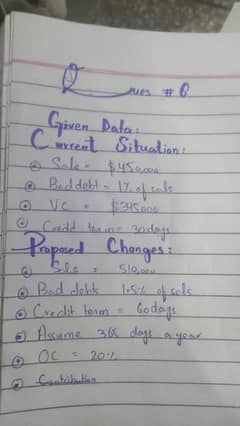 Ques # 6
Given Data:
Current Situation:
Sale = $450,000
Bad debt = 1% of sals
VC = $345000
Credit term = 30 days
Proposed Changes:
Sals = 510,000
Bad debts 1.5% of sals
Credit term = 60 days
Assume 365 days a year
OC = 20%
Contribution